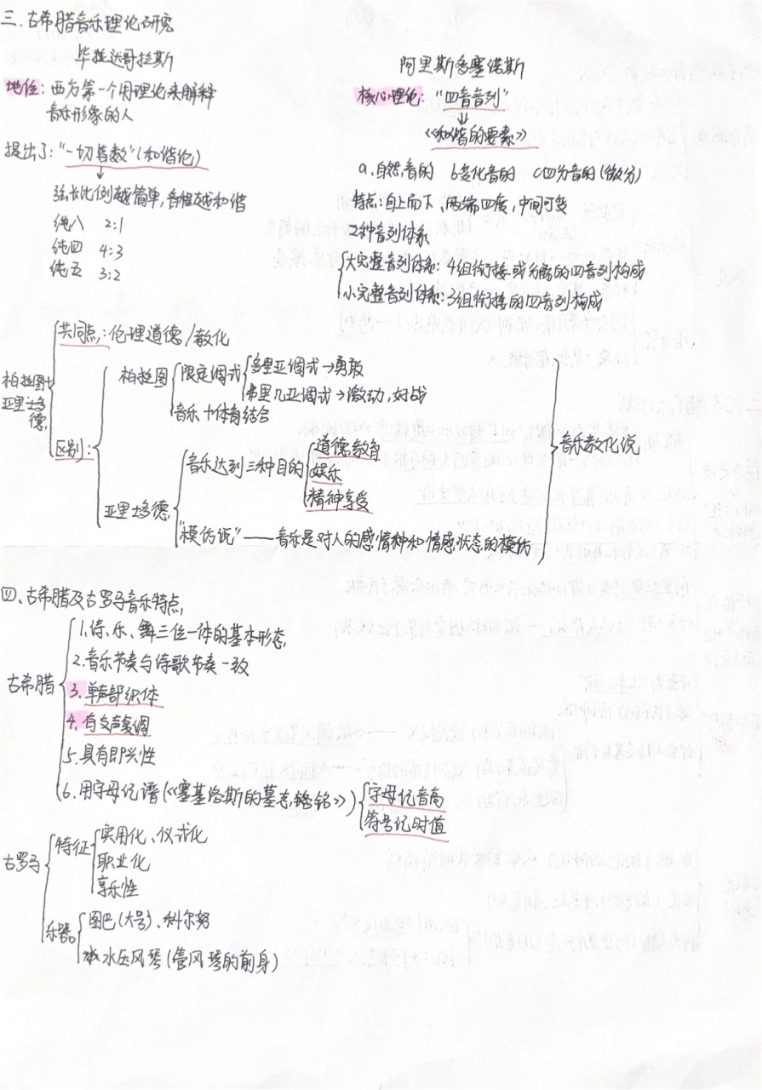 三.古希腊音乐理论研究
毕拉达哥拉斯
地位:西方第一个用理论来解释
音乐形象的人
提出了:"一切皆数"(和谐论)
弦长比例越简单,音程越和谐
纯八 2:1
纯四 4:3
纯五 3:2
阿里斯多塞诺斯
核心理论:"四音音列"
《和谐的要素》
a.自然音的 b变化音的 c四分音的(微分)
特点:自上而下、两端四度,中间可变
2种音列体系
大完整音列体系:4组衔接或分离的四音列构成
小完整音列体系:3组衔接的四音列构成
柏拉图+
亚里士多德
共同点:伦理道德/教化
区别:
柏拉图
限定调式
多里亚调式→勇敢
弗里几亚调式→激动,好战
音乐+体育结合
亚里士多德
音乐达到三种目的
道德教育
娱乐
精神享受
"模仿说"——音乐是对人的感情种和情感状态的模仿
音乐教化说
四.古希腊及古罗马音乐特点
古希腊
1.诗、乐、舞三位一体的基本形态
2.音乐节奏与诗歌节奏一致
3.单声部织体
4.有支声复调
5.具有即兴性
6.用字母记谱(《塞基洛斯的墓志铭》)
字母记音高
符号记时值
古罗马
特征
实用化、仪式化
职业化
享乐性
乐器
图巴(大号)、科尔努
水压风琴(管风琴的前身)